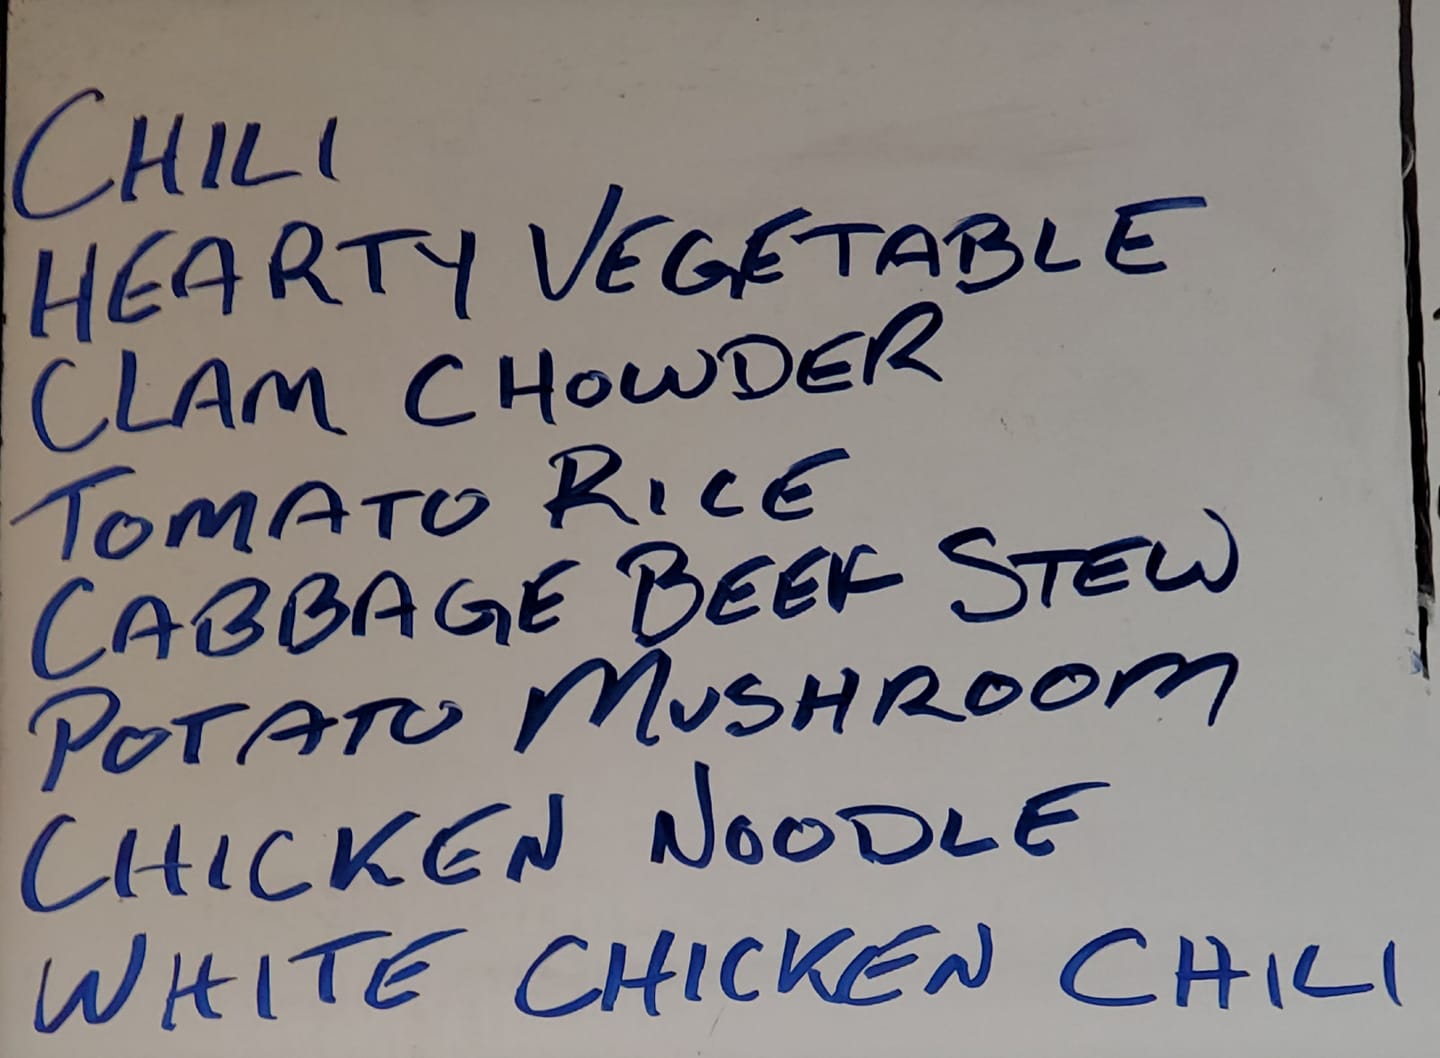 CHILI
HEARTY VEGETABLE
CLAM CHOWDER
TOMATO RICE
CABBAGE BEEF STEW
POTATO MUSHROOM
CHICKEN NOODLE
WHITE CHICKEN CHILI